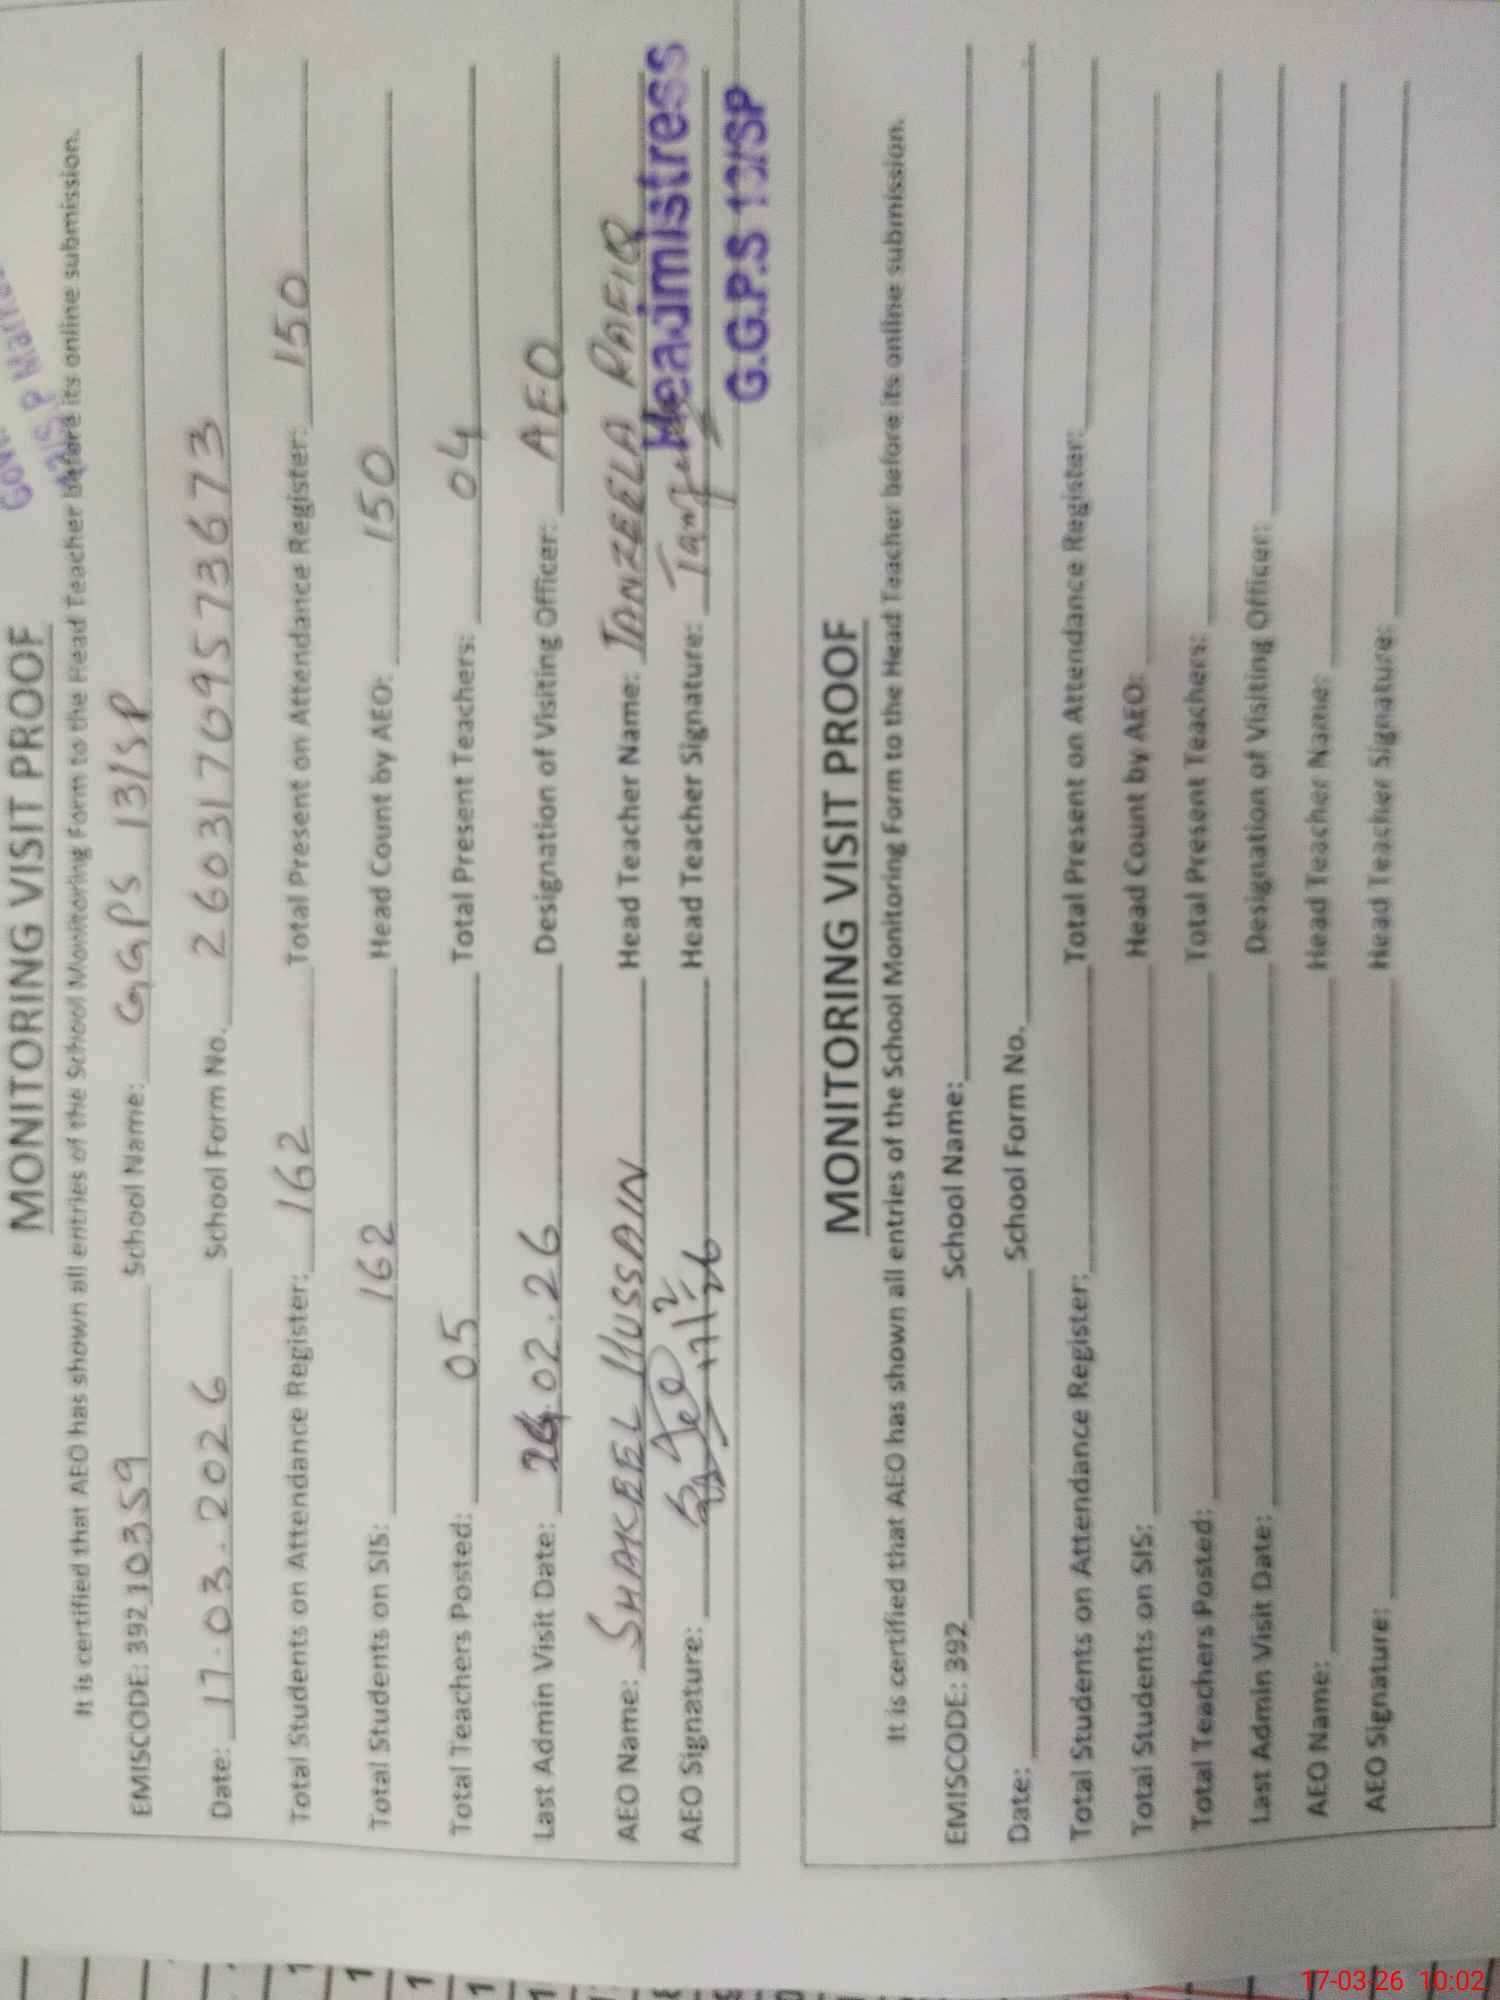 MONITORING VISIT PROOF
It is certified that AEO has shown all entries of the School Monitoring Form to the Head Teacher before its online submission.
EMISCODE: 392 10359 School Name: GGPS 13/SP
Date: 17.03.2026 School Form No. 2603170957 3673
Total Students on Attendance Register: 162 Total Present on Attendance Register: 150
Total Students on SIS: 162 Head Count by AEO: 150
Total Teachers Posted: 05 Total Present Teachers: 04
Last Admin Visit Date: .02.26 Designation of Visiting Officer: AEO
AEO Name: SHAKEEL HUSSAIN Head Teacher Name: TANZEELA RAFIQ
AEO Signature: Head Teacher Signature:
Headmistress
G.G.P.S 13/SP
MONITORING VISIT PROOF
It is certified that AEO has shown all entries of the School Monitoring Form to the Head Teacher before its online submission.
EMISCODE: 392 School Name:
Date: School Form No.
Total Students on Attendance Register: Total Present on Attendance Register:
Total Students on SIS: Head Count by AEO:
Total Teachers Posted: Total Present Teachers:
Last Admin Visit Date: Designation of Visiting Officer:
AEO Name: Head Teacher Name:
AEO Signature: Head Teacher Signature:
17-03-26 10:02